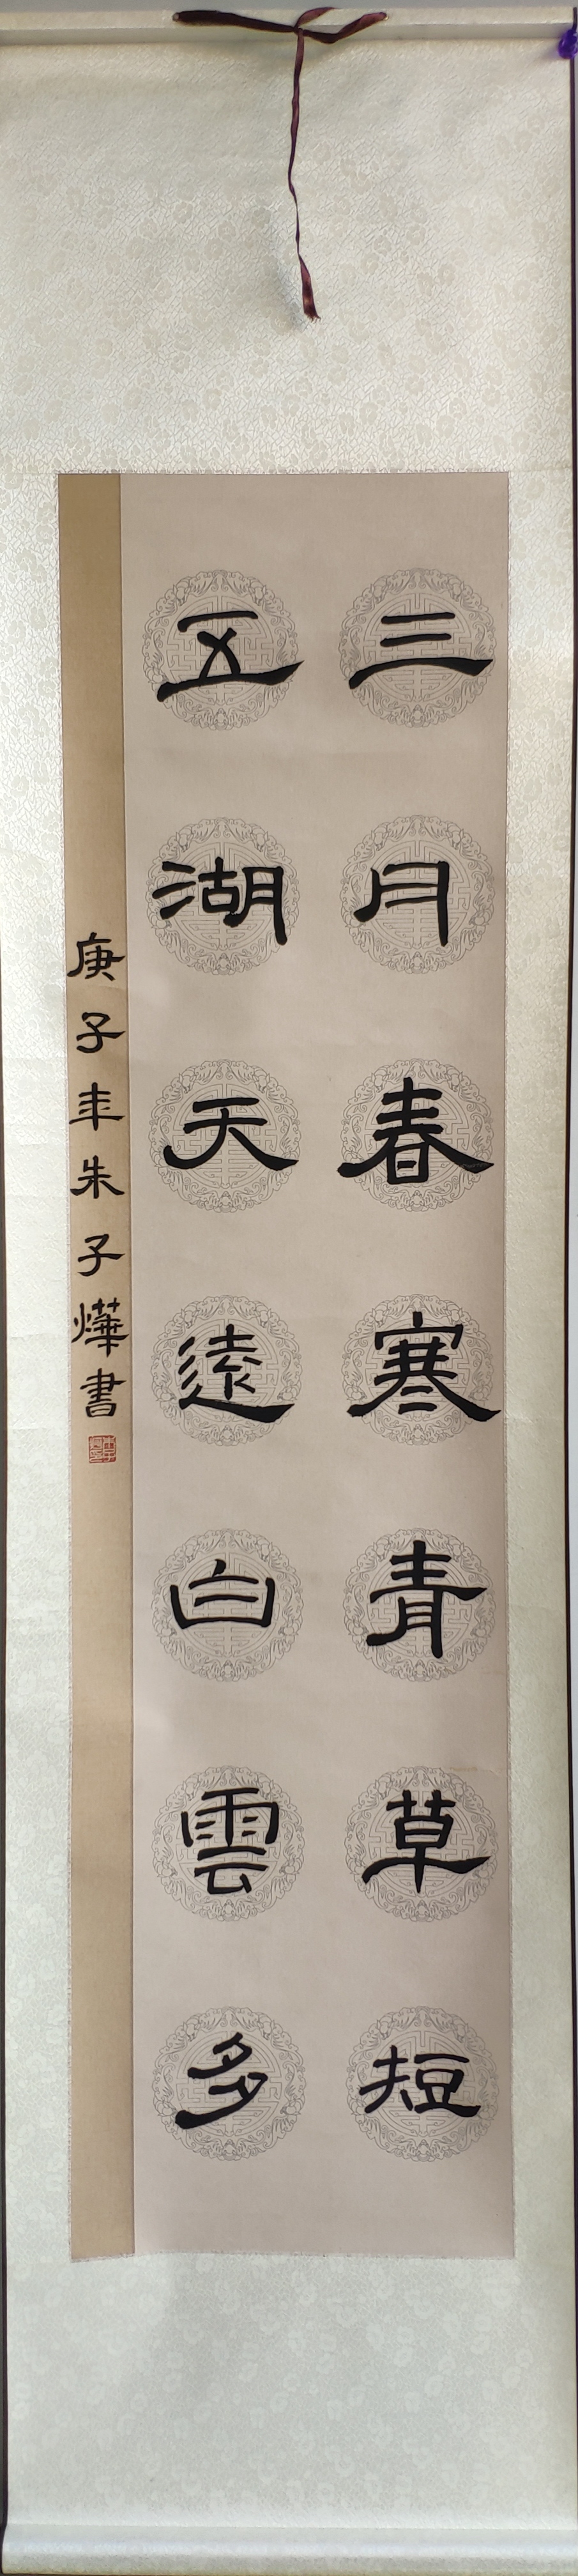 三月春寒青草短
五湖天遠白雲多
庚子年朱子燁書